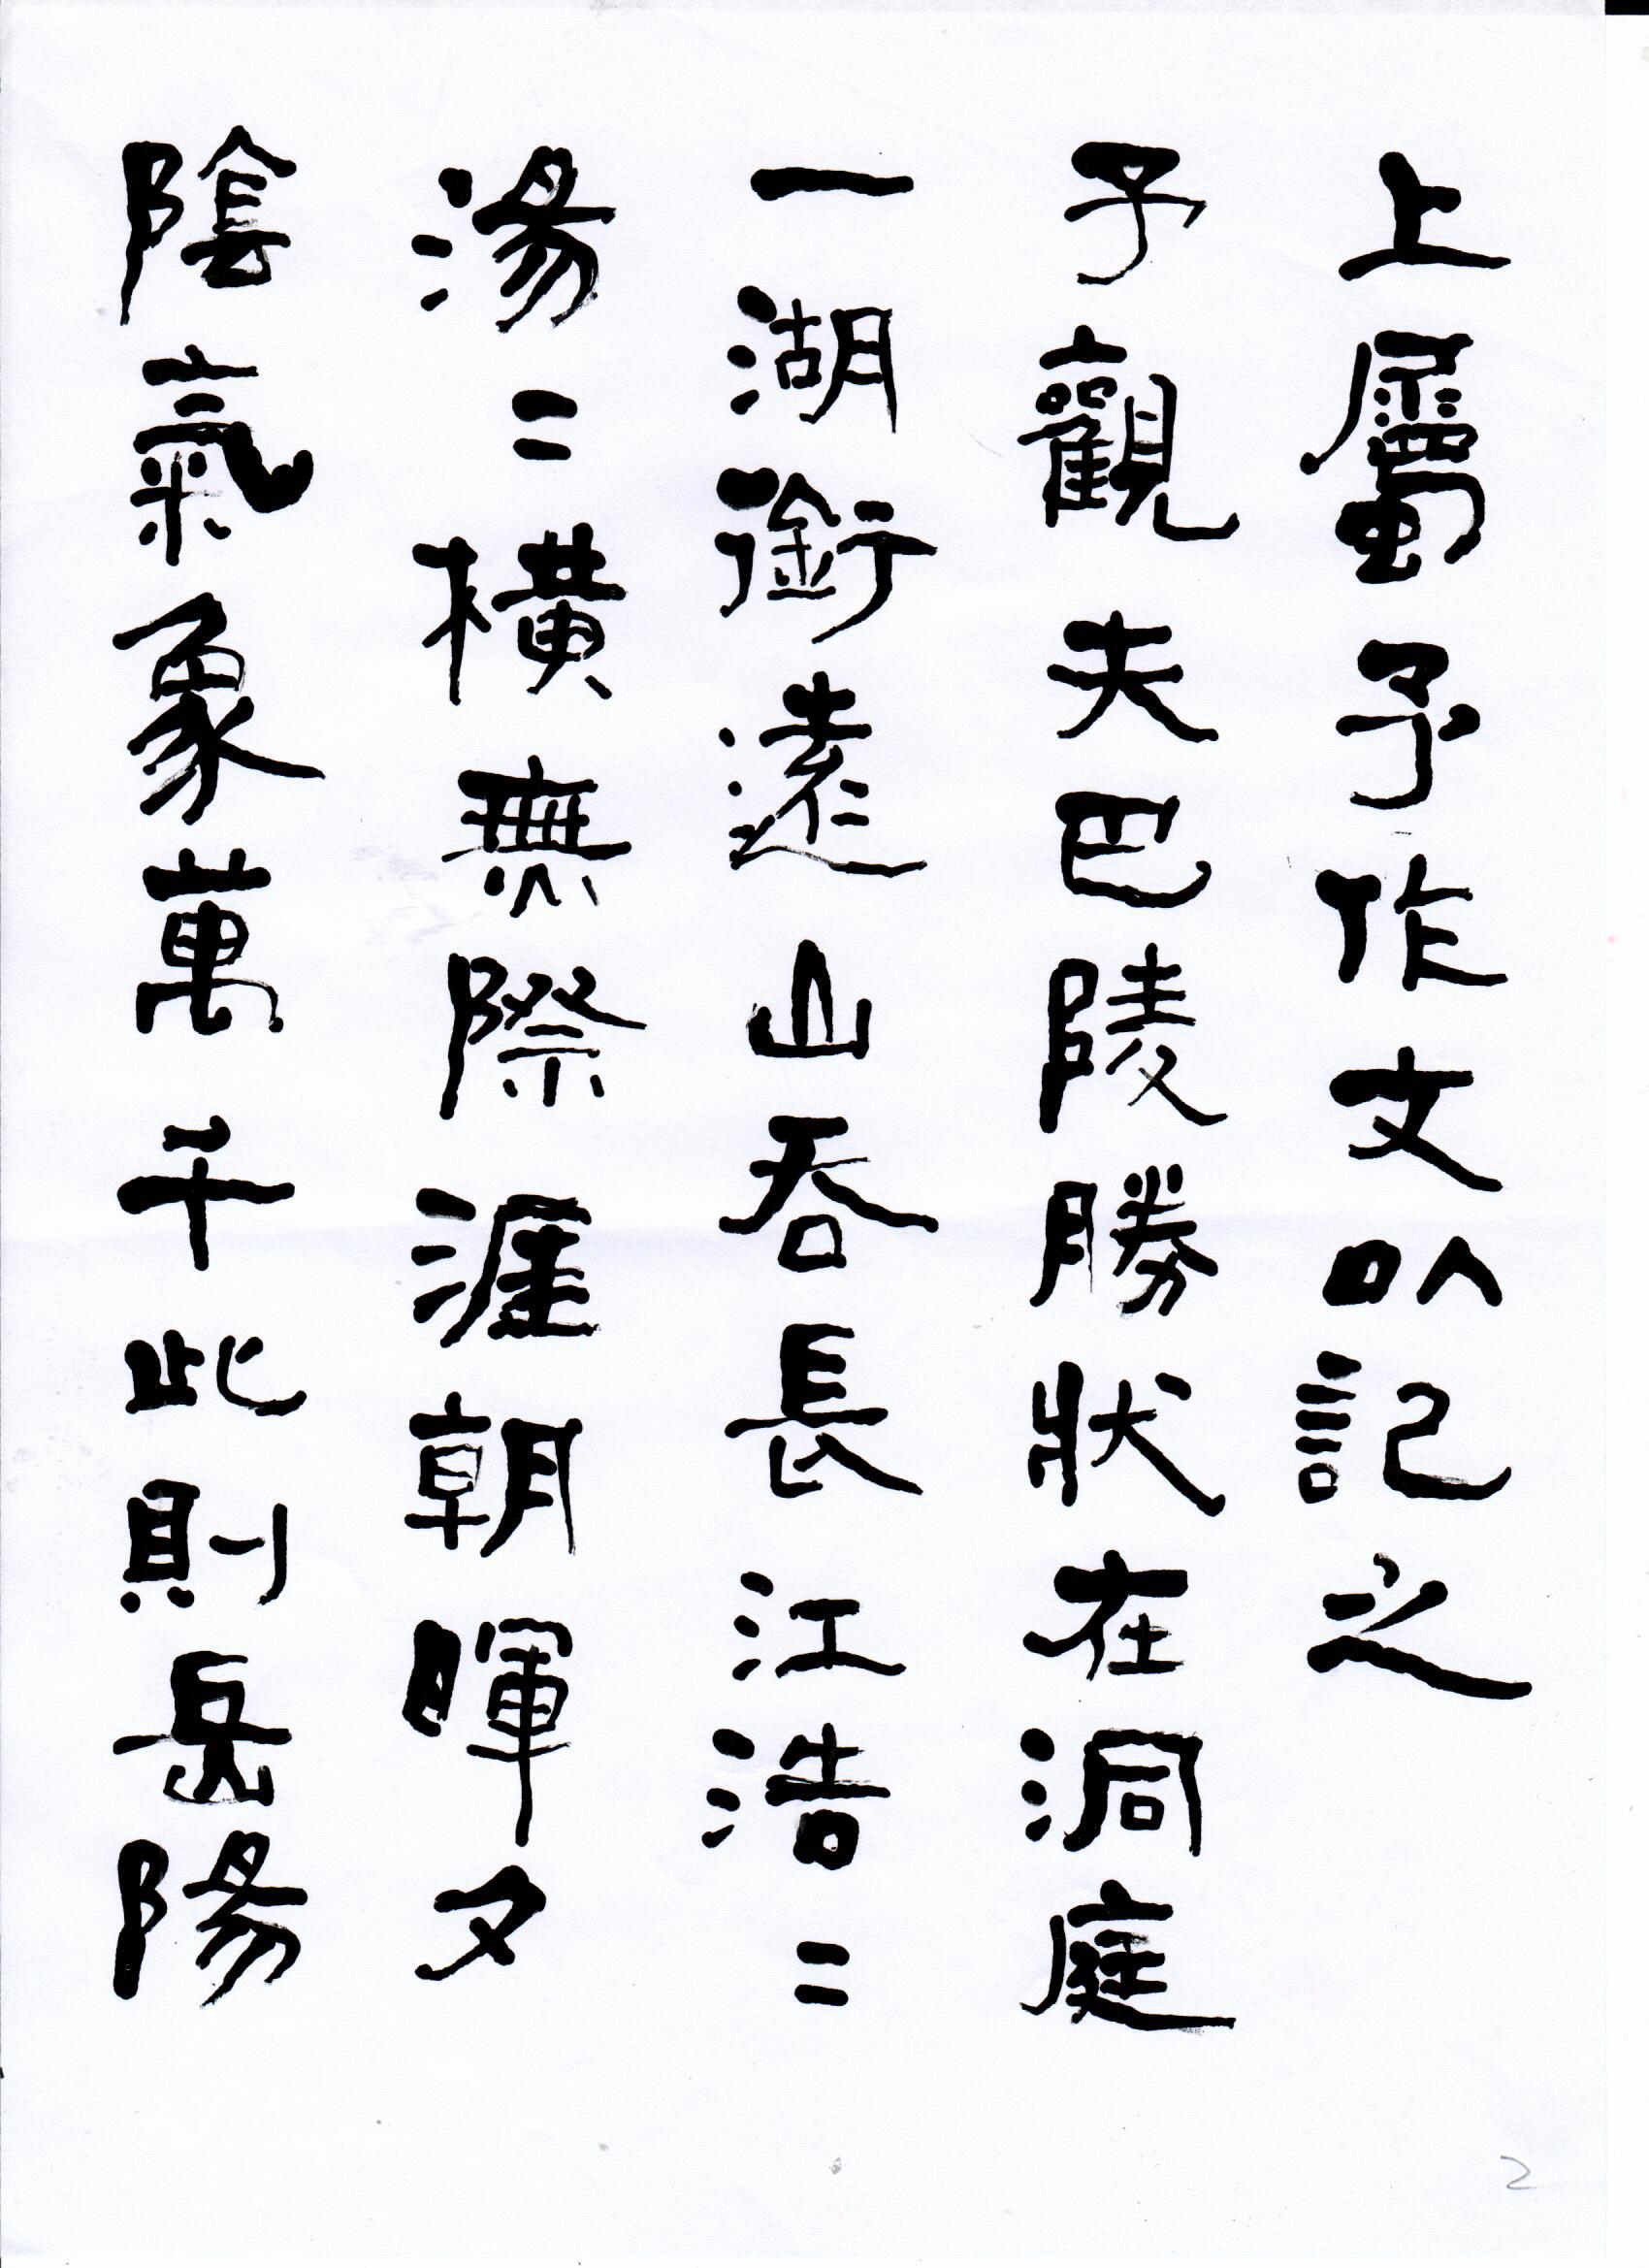 上屬予作文以記之
予觀夫巴陵勝狀在洞庭
一湖銜遠山吞長江浩二
湯二橫無際涯朝暉夕
陰氣象萬千此則岳陽
2